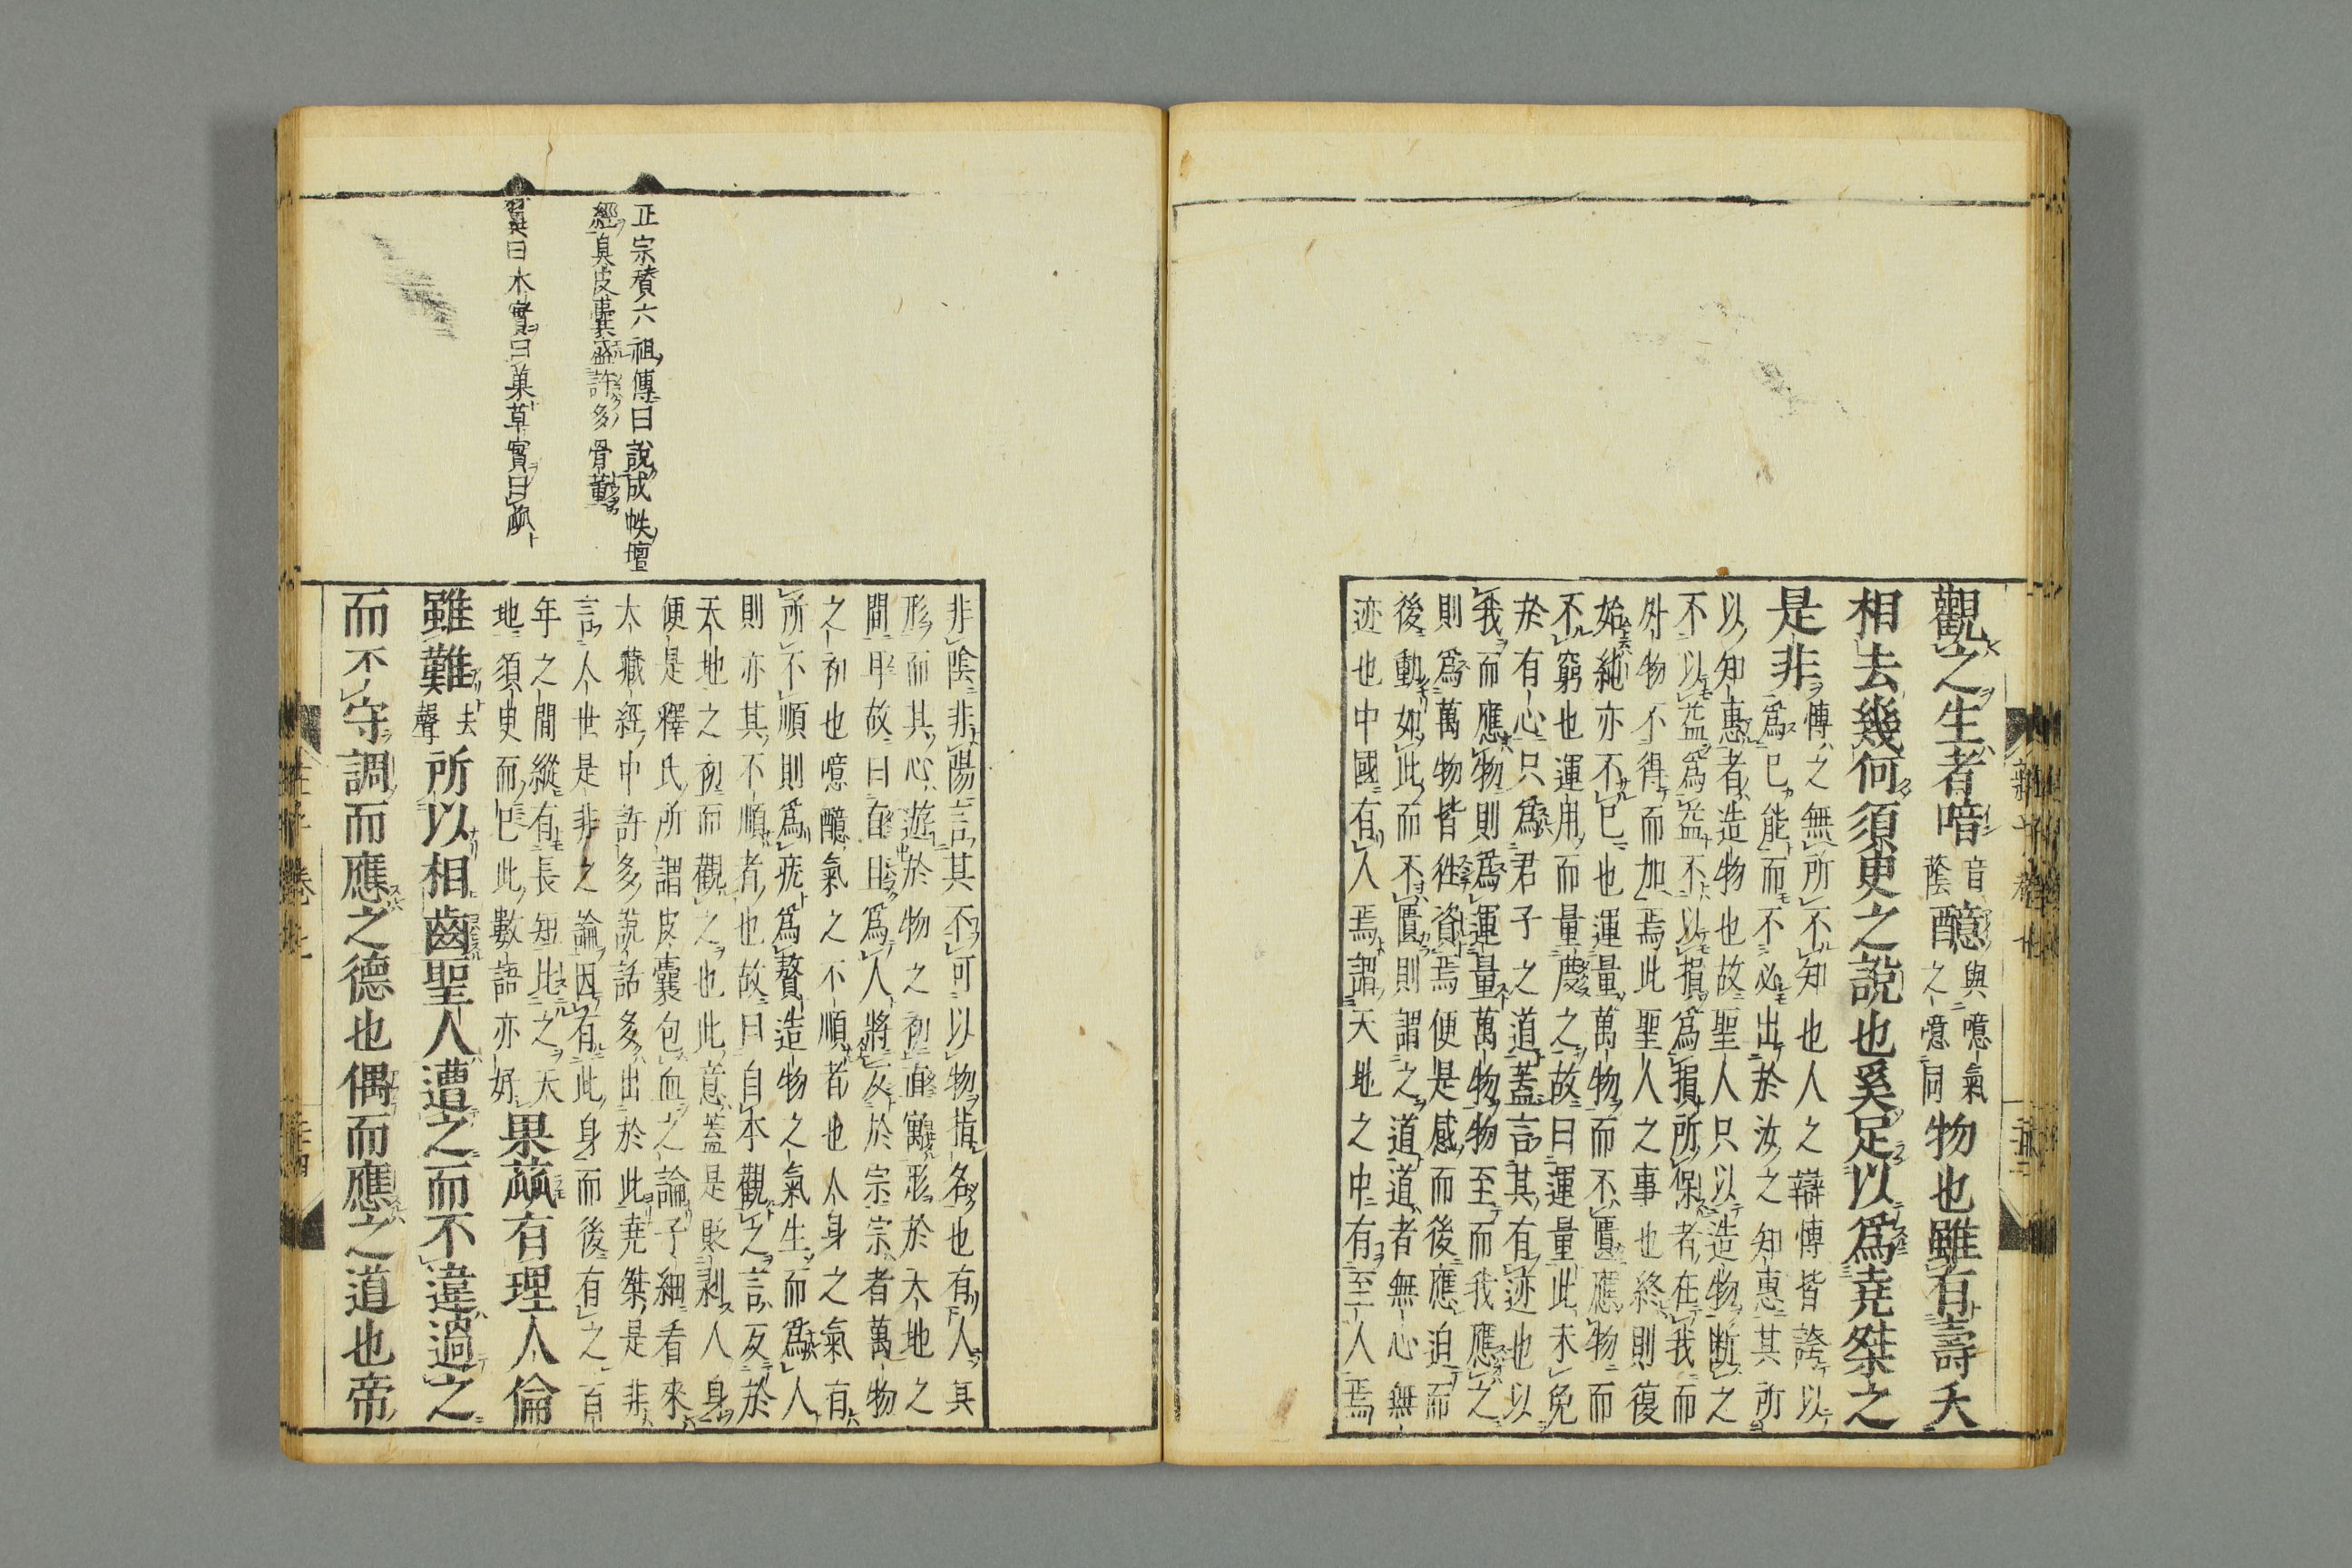 觀之生者喑音蔭醷與噫氣之噫同物也雖有壽夭
相去幾何須臾之說也奚足以爲堯桀之
是非博之無所不知也人之辯博皆誇以
爲已能而不必出於汝之知惠其所
以知惠者造物也故聖人只以造物斷之
不以益爲益不以損爲損所保者在我而
外物不得而加焉此聖人之事也終則復
始純亦不已也運量萬物而不匱應物而
不窮也運用而量度之故曰運量此未免
於有心只爲君子之道蓋言其有迹也以
我而應物則爲運量萬物物至而我應之
則爲萬物皆往資焉便是感而後應迫而
後動如此而不匱則謂之道道者無心無
迹也中國有人焉謂天地之中有至人焉
非陰非陽言其不可以物指名也有人其
形而其心遊於物之初直寓形於天地之
間耳故曰直且爲人將反於宗宗者萬物
之初也噫醷氣之不順者也人身之氣有
所不順則爲疣爲贅造物之氣生而爲人
則亦其不順者也故曰自本觀之言反於
天地之初而觀之也此意蓋是貶剥人身
便是釋氏所謂皮囊包血之論子細看來
大藏經中許多說話多出於此堯桀是非
言人世是非之論因有此身而後有之百
年之間縱有長短比之天
地須臾而已此數語亦好果蓏有理人倫
雖難去聲所以相齒聖人遭之而不違過之
而不守調而應之德也偶而應之道也帝
正宗贊六祖傳曰說成帙壇
經臭皮囊盛許多骨董
翼曰木實曰菓草實曰蓏